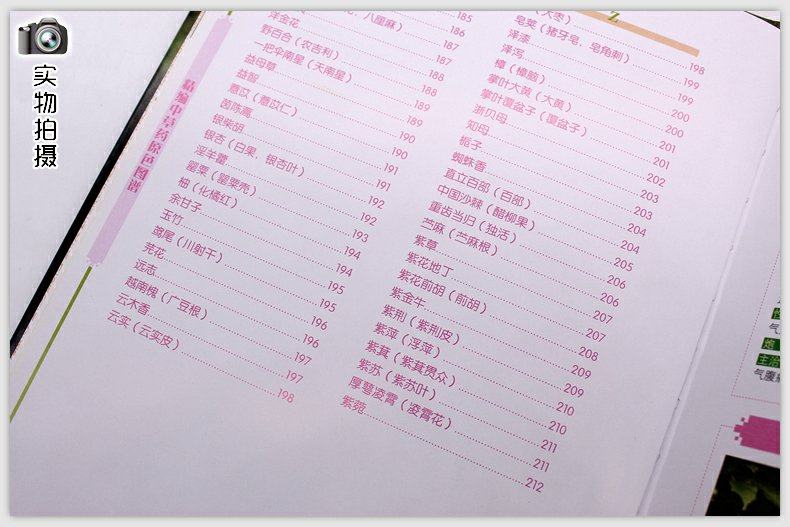 实物拍摄
精编中草药原色图谱
185
186
花、八厘麻）187
洋金花 188
野百合（农吉利） 188
一把伞南星（天南星） 189
益母草 189
益智 190
薏苡（薏苡仁） 190
茵陈蒿 191
银柴胡 191
银杏（白果、银杏叶） 192
淫羊藿 192
罂粟（罂粟壳） 193
柚（化橘红） 194
余甘子 194
玉竹 195
鸢尾（川射干） 195
芫花 196
远志 196
越南槐（广豆根） 197
云木香 197
云实（云实皮） 198
Z
皂荚（猪牙皂、皂角刺） 198
泽漆 199
泽泻 199
樟（樟脑） 200
掌叶大黄（大黄） 201
掌叶覆盆子（覆盆子） 201
浙贝母 202
知母 203
栀子 203
蜘蛛香 204
直立百部（百部） 204
中国沙棘（醋柳果） 205
重齿当归（独活） 206
苎麻（苎麻根） 206
紫草 207
紫花地丁 207
紫花前胡（前胡） 208
紫金牛 209
紫荆（紫荆皮） 209
紫萍（浮萍） 210
紫萁（紫萁贯众） 210
紫苏（紫苏叶） 211
厚萼凌霄（凌霄花） 211
紫菀 212
主治